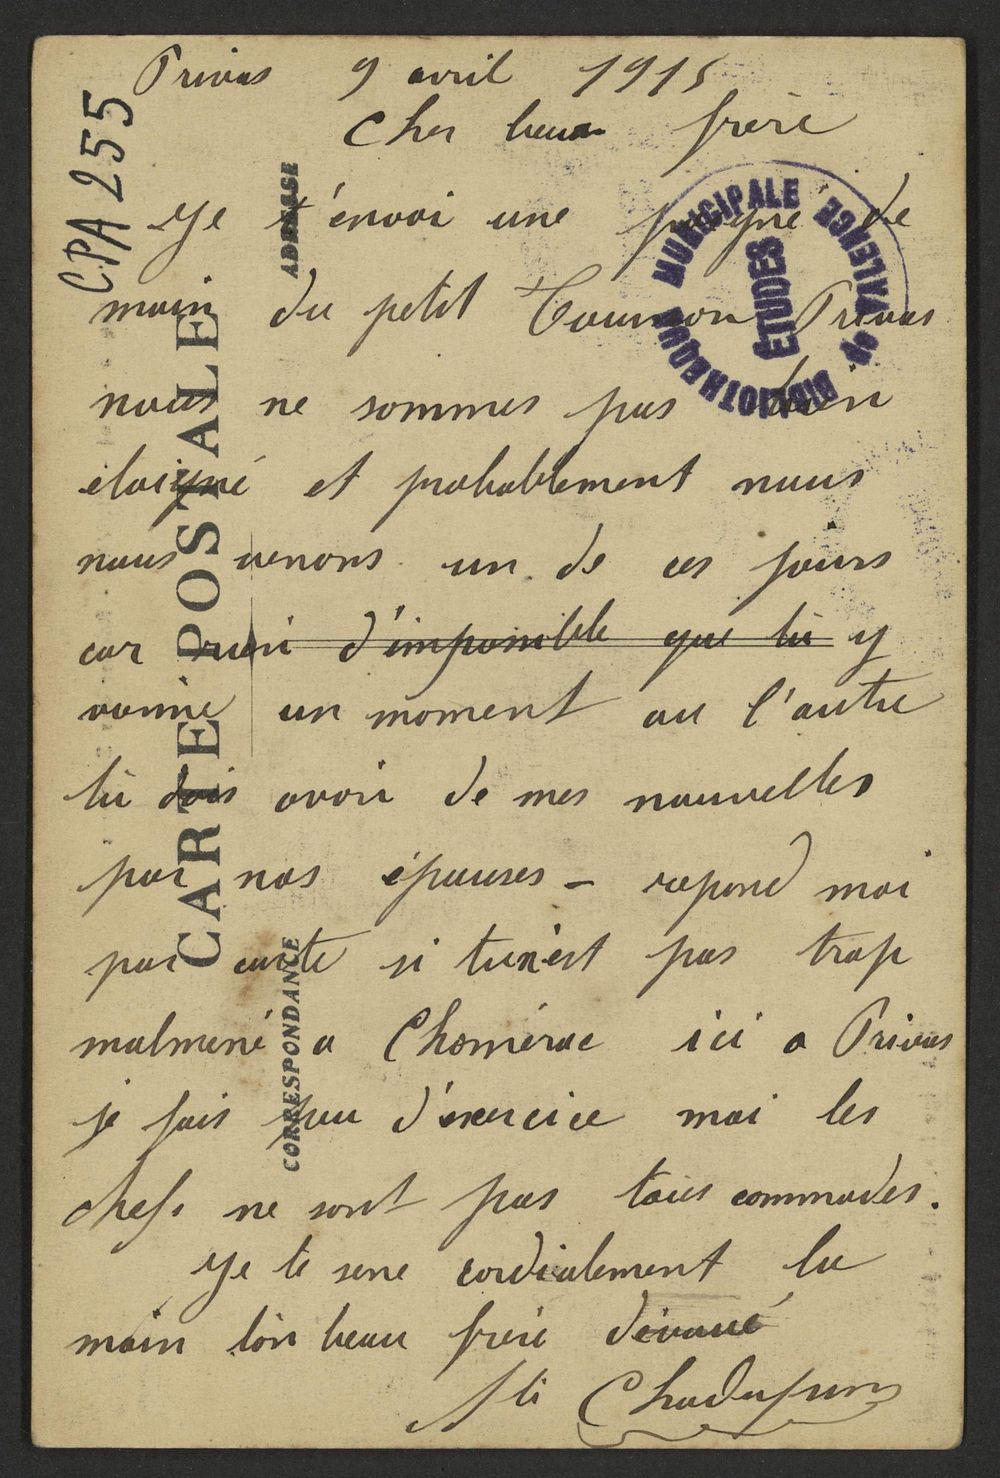 Privas 9 avril 1915
Cher beau frère
Je t'envoi une pogné de
main du petit Tournon Privas
nous ne sommes pas bien
eloigné et probablement nous
nous verrons un de ces jours
car rien d'imposible que tu y
vienne un moment ou l'autre
tu dois avoir de mes nouvelles
par nos épouses - repond moi
par carte si tu n'est pas trop
malmené a Chomérac ici a Privas
je fais peu d'exercice moi les
chefs ne sont pas tous commodes.
Je te serre cordialement la
main ton beau frère dévoué
CPA 255
CARTE POSTALE
CORRESPONDANCE
ADRESSE
BIBLIOTHEQUE MUNICIPALE de VALENCE
ETUDES